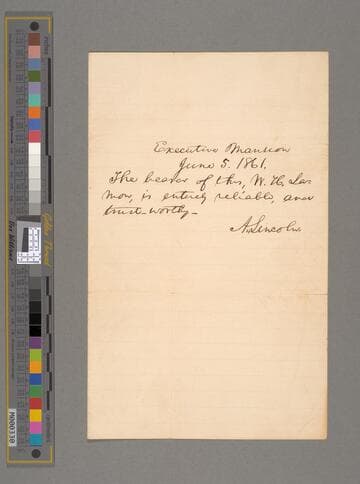 Executive Mansion
June 5. 1861.
The bearer of this, W. H. La-
mon, is entirely reliable, and
trust-worthy-
A. Lincoln.
Golden Thread
M000330